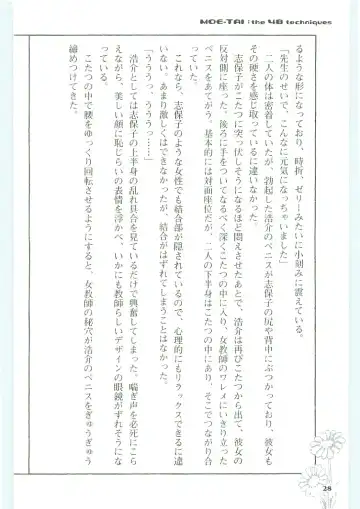 MOE-TAI : the 48 techniques
るような形になっており、時折、ゼリーみたいに小刻みに震えている。
「先生のせいで、こんなに元気になっちゃいました」
二人の体は密着していたが、勃起した浩介のペニスが志保子の尻や背中にぶつかっており、彼女も
その硬さを感じ取っているに違いなかった。
志保子がこたつに突っ伏しそうになるほど悶えさせたあとで、浩介は再びこたつから出て、彼女の
反対側に座った。後ろに手をついてなるべく深くこたつの中に入り、女教師のワレメにいきり立った
ペニスをあてがう。基本的には対面座位だが、二人の下半身はこたつの中にあり、そこでつながり合
これなら、志保子のような女性でも結合部が隠されているので、心理的にもリラックスできるに違
いない。あまり激しくはできなかったが、結合がはずれてしまうことはなかった。
「ううぅっ、うううっ……」
浩介としては志保子の上半身の乱れ具合を見ているだけで興奮してしまった。喘ぎ声を必死にこら
えながら、美しい顔に恥じらいの表情を浮かべ、いかにも教師らしいデザインの眼鏡がずれそうにな
っている。
こたつの中で腰をゆっくり回転させるようにすると、女教師の秘穴が浩介のペニスをぎゅうぎゅう
締めつけてきた。
28